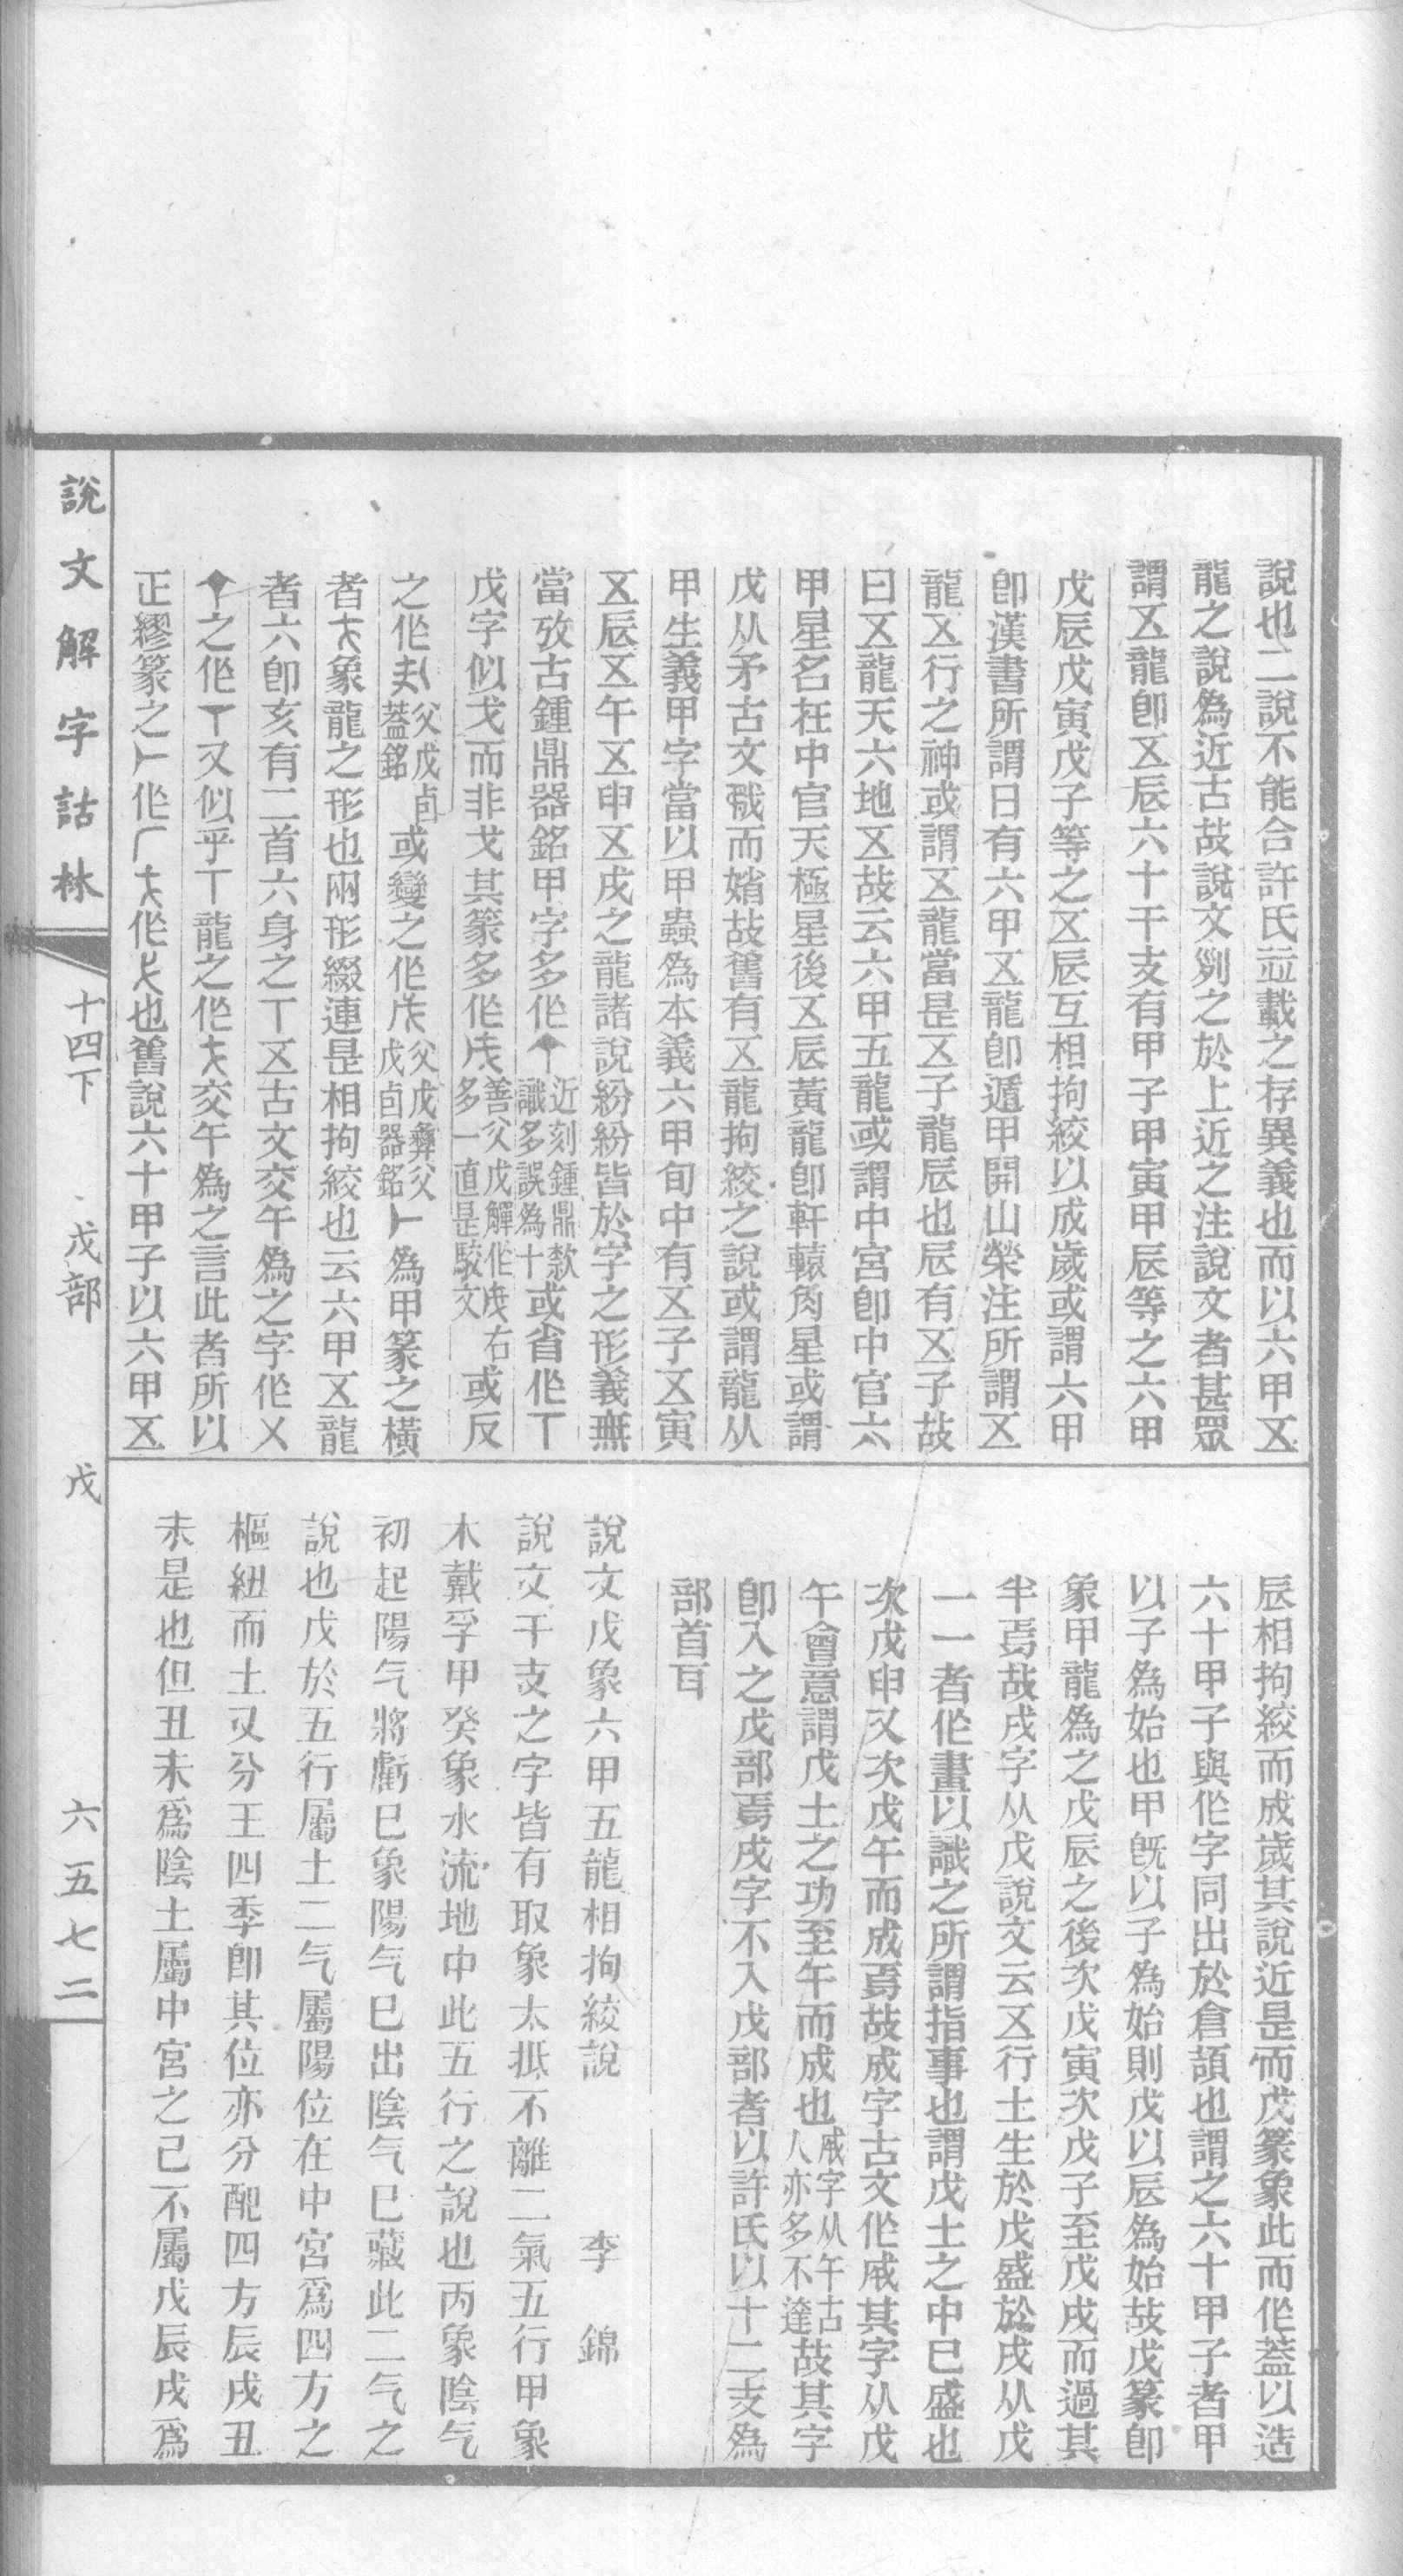 說也二說不能合許氏並載之存異義也而以六甲五
龍之說爲近古故說文列之於上近之注說文者甚眾
謂五龍卽五辰六十干支有甲子甲寅甲辰等之六甲
戊辰戊寅戊子等之五辰互相拘絞以成歲或謂六甲
卽漢書所謂日有六甲五龍卽遁甲開山榮注所謂五
龍五行之神或謂五龍當是五子龍辰也辰有五子故
曰五龍天六地五故云六甲五龍或謂中宮卽中官六
甲星名在中官天極星後五辰黃龍卽軒轅角星或謂
戊从矛古文而婧故舊有五龍拘絞之說或謂龍从
甲生義甲字當以甲蟲爲本義六甲旬中有五子五寅
五辰五午五申五戌之龍諸說紛紛皆於字之形義無
當攷古鍾鼎器銘甲字多作近刻鍾鼎款識多誤爲十或省作丅
戊字似戈而非戈其篆多作善父戊觶作右多一直是駁文或反
之作父戊卣蓋銘或變之作父戊彝父戊卣器銘爲甲篆之橫
者象龍之形也兩形綴連是相拘絞也云六甲五龍
者六卽亥有二首六身之丅五古文交午爲之字作㐅
之作丅又似乎丅龍之作交午爲之言此者所以
正繆篆之作作也舊說六十甲子以六甲五
辰相拘絞而成歲其說近是而戊篆象此而作蓋以造
六十甲子與作字同出於倉頡也謂之六十甲子者甲
以子爲始也甲旣以子爲始則戊以辰爲始故戊篆卽
象甲龍爲之戊辰之後次戊寅次戊子至戊戌而過其
半焉故戌字从戊說文云五行土生於戊盛於戌从戊
一一者作畫以識之所謂指事也謂戊土之中已盛也
次戊申又次戊午而成焉故成字古文作其字从戊
午會意謂戊土之功至午而成也字从午古人亦多不達故其字
卽入之戊部焉戌字不入戊部者以許氏以十二支爲
部首耳
說文戊象六甲五龍相拘絞說　李錦
說文干支之字皆有取象太抵不離二氣五行甲象
木戴孚甲癸象水流地中此五行之說也丙象陰气
初起陽气將虧巳象陽气巳出陰气巳藏此二气之
說也戊於五行屬土二气屬陽位在中宮爲四方之
樞紐而土又分王四季卽其位亦分配四方辰戌丑
未是也但丑未爲陰土屬中宮之己不屬戊辰戌爲
說文解字詁林
十四下　戊部　戊
六五七二